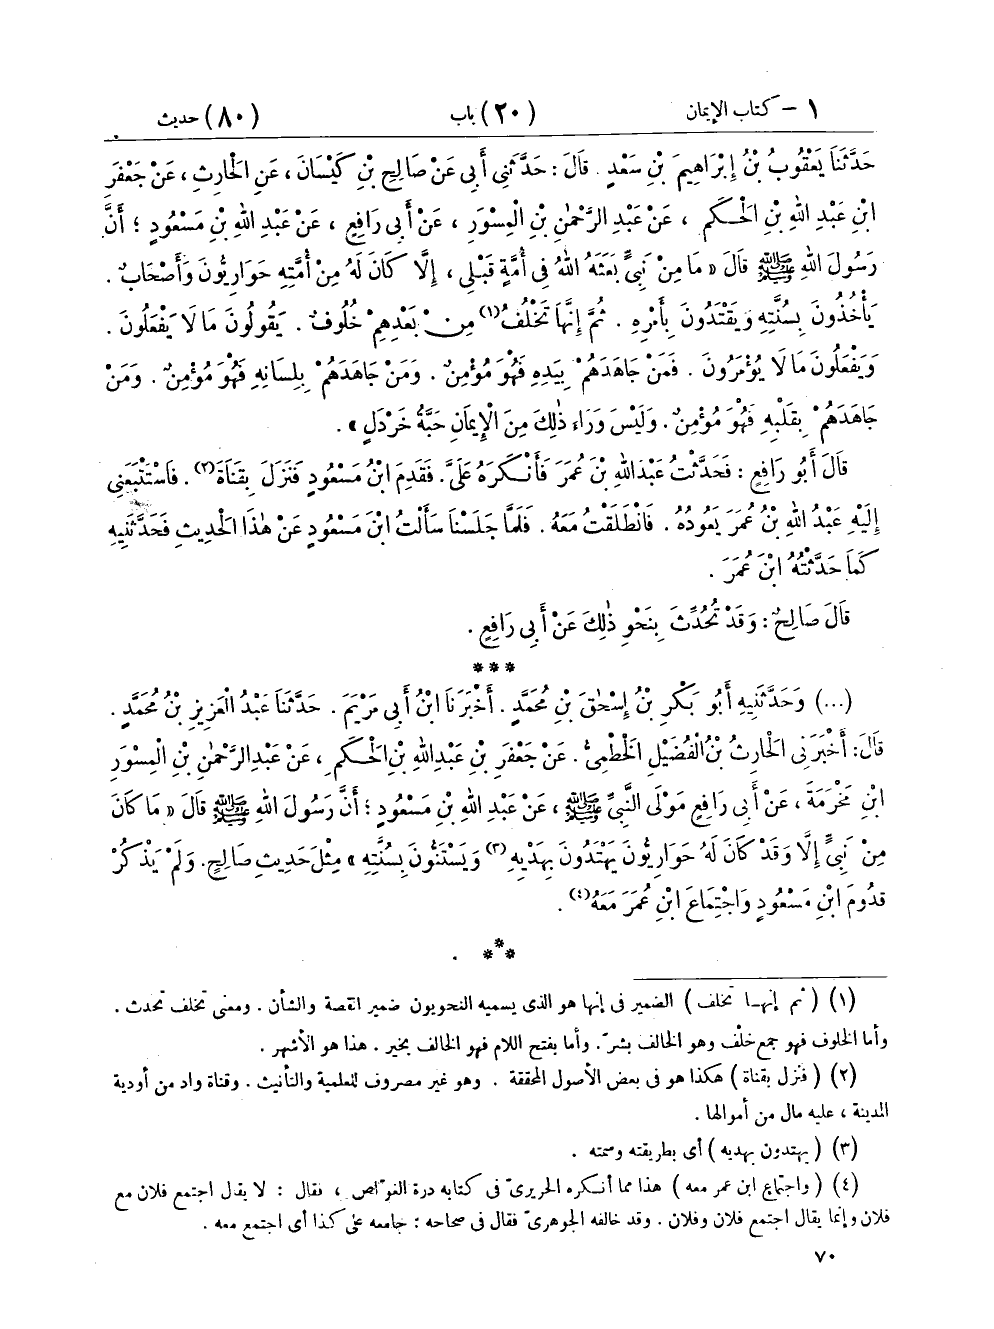 ١ - كتاب الإيمان (٢٠) باب (٨٠) حديث
حَدَّثَنَا يَعْقُوبُ بْنُ إِبْرَاهِيمَ بْنِ سَعْدٍ . قَالَ : حَدَّثَنِي أَبِي عَنْ صَالِحِ بْنِ كَيْسَانَ ، عَنِ الْحَارِثِ ، عَنْ جَعْفَرِ
ابْنِ عَبْدِ اللهِ بْنِ الْحَكَمِ ، عَنْ عَبْدِ الرَّحْمٰنِ بْنِ الْمِسْوَرِ ، عَنْ أَبِي رَافِعٍ ، عَنْ عَبْدِ اللهِ بْنِ مَسْعُودٍ ؛ أَنَّ
رَسُولَ اللهِ ﷺ قَالَ « مَا مِنْ نَبِيٍّ بَعَثَهُ اللهُ فِي أُمَّةٍ قَبْلِي ، إِلَّا كَانَ لَهُ مِنْ أُمَّتِهِ حَوَارِيُّونَ وَأَصْحَابٌ .
يَأْخُذُونَ بِسُنَّتِهِ وَيَقْتَدُونَ بِأَمْرِهِ . ثُمَّ إِنَّهَا تَخْلُفُ(١) مِنْ بَعْدِهِمْ خُلُوفٌ . يَقُولُونَ مَا لَا يَفْعَلُونَ .
وَيَفْعَلُونَ مَا لَا يُؤْمَرُونَ . فَمَنْ جَاهَدَهُمْ بِيَدِهِ فَهُوَ مُؤْمِنٌ . وَمَنْ جَاهَدَهُمْ بِلِسَانِهِ فَهُوَ مُؤْمِنٌ . وَمَنْ
جَاهَدَهُمْ بِقَلْبِهِ فَهُوَ مُؤْمِنٌ . وَلَيْسَ وَرَاءَ ذٰلِكَ مِنَ الْإِيمَانِ حَبَّةُ خَرْدَلٍ » .
قَالَ أَبُو رَافِعٍ : فَحَدَّثْتُ عَبْدَ اللهِ بْنَ عُمَرَ فَأَنْكَرَهُ عَلَيَّ . فَقَدِمَ ابْنُ مَسْعُودٍ فَنَزَلَ بِقَنَاةَ(٢) . فَاسْتَتْبَعَنِي
إِلَيْهِ عَبْدُ اللهِ بْنُ عُمَرَ يَعُودُهُ . فَانْطَلَقْتُ مَعَهُ . فَلَمَّا جَلَسْنَا سَأَلْتُ ابْنَ مَسْعُودٍ عَنْ هٰذَا الْحَدِيثِ فَحَدَّثَنِيهِ
كَمَا حَدَّثْتُهُ ابْنَ عُمَرَ .
قَالَ صَالِحٌ : وَقَدْ تُحُدِّثَ بِنَحْوِ ذٰلِكَ عَنْ أَبِي رَافِعٍ .
***
(...) وَحَدَّثَنِيهِ أَبُو بَكْرِ بْنُ إِسْحٰقَ بْنِ مُحَمَّدٍ . أَخْبَرَنَا ابْنُ أَبِي مَرْيَمَ . حَدَّثَنَا عَبْدُ الْعَزِيزِ بْنُ مُحَمَّدٍ .
قَالَ : أَخْبَرَنِي الْحَارِثُ بْنُ الْفُضَيْلِ الْخَطْمِيُّ . عَنْ جَعْفَرِ بْنِ عَبْدِ اللهِ بْنِ الْحَكَمِ ، عَنْ عَبْدِ الرَّحْمٰنِ بْنِ الْمِسْوَرِ
ابْنِ مَخْرَمَةَ ، عَنْ أَبِي رَافِعٍ مَوْلَى النَّبِيِّ ﷺ ، عَنْ عَبْدِ اللهِ بْنِ مَسْعُودٍ ؛ أَنَّ رَسُولَ اللهِ ﷺ قَالَ « مَا كَانَ
مِنْ نَبِيٍّ إِلَّا وَقَدْ كَانَ لَهُ حَوَارِيُّونَ يَهْتَدُونَ بِهَدْيِهِ(٣) وَيَسْتَنُّونَ بِسُنَّتِهِ » مِثْلَ حَدِيثِ صَالِحٍ . وَلَمْ يَذْكُرْ
قُدُومَ ابْنِ مَسْعُودٍ وَاجْتِمَاعَ ابْنِ عُمَرَ مَعَهُ(٤) .
***
(١) ( ثم إنها تخلف ) الضمير في إنها هو الذي يسميه النحويون ضمير القصة والشأن . ومعنى تخلف تحدث .
وأما الخلوف فهو جمع خلْف وهو الخالف بشرّ . وأما بفتح اللام فهو الخالف بخير . هذا هو الأشهر .
(٢) ( فنزل بقناة ) هكذا هو في بعض الأصول المحققة . وهو غير مصروف للعلمية والتأنيث . وقناة واد من أودية
المدينة ، عليه مال من أموالها .
(٣) ( يهتدون بهديه ) أي بطريقته وسمته .
(٤) ( واجتماع ابن عمر معه ) هذا مما أنكره الحريريّ في كتابه درة الغواص ، فقال : لا يقال اجتمع فلان مع
فلان وإنما يقال اجتمع فلان وفلان . وقد خالفه الجوهريّ فقال في صحاحه : جامعه على كذا أي اجتمع معه .
٧٠